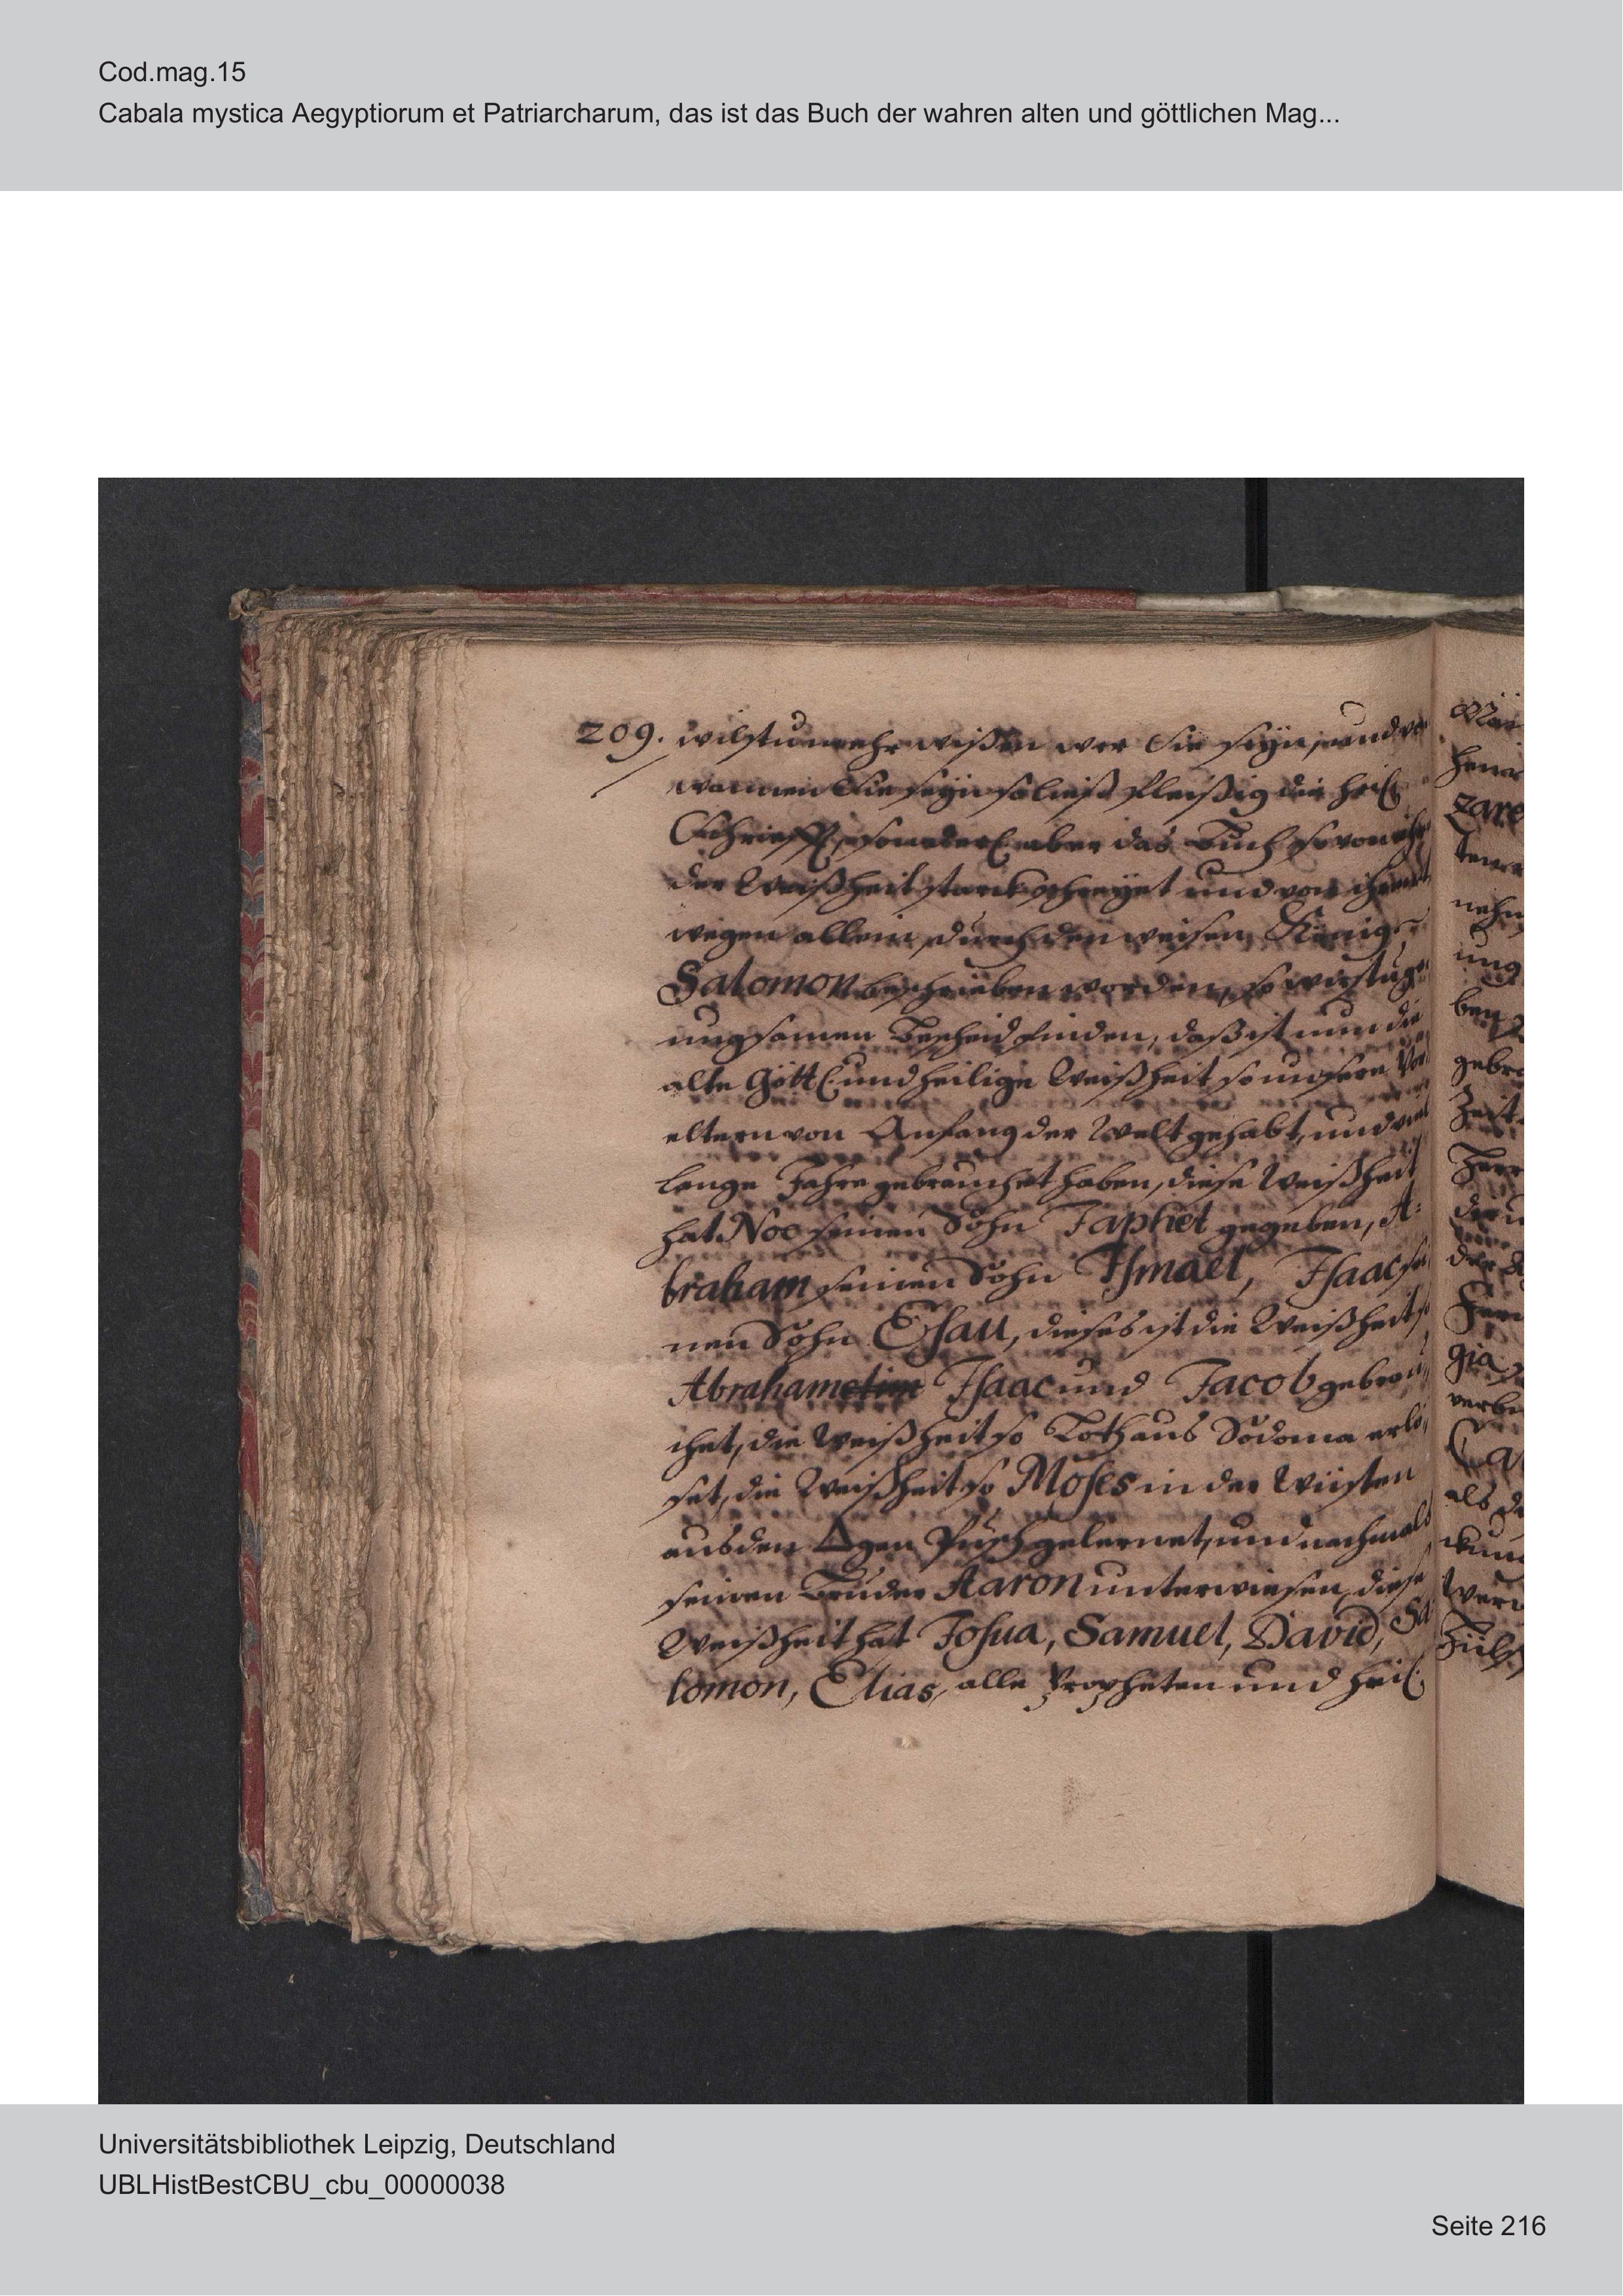 Cod.mag.15
Cabala mystica Aegyptiorum et Patriarcharum, das ist das Buch der wahren alten und göttlichen Mag...
209. wilstu mehr wißen wer Sie seÿn, und vo
wannen Sie seÿn so ließ fleißig die heil
Schrifft, sonderl aber das Buch so von ihr
der Weißheit starck schreÿet und von
wegen allein durch den weisen König
Salomon beschrieben worden, so wirstu ge
nugsamen Bescheid finden, daß ist nun die
alte Göttl und heilige Weißheit so unsere Vor
eltern von Anfang der Welt gehabt, und viel
lange Jahre gebrauchet haben, diese Weißheit
hat Noe seinen Sohn Japhet gegeben, A:
braham seinen Sohn Ismael, Isaac sei
nen Sohn Esau, dieses ist die Weißheit so
Abraham Isaac und Jacob gebrau
chet, die Weißheit so Loth aus Sodoma erlö
set, die Weißheit so Moses in der Wüsten
aus den △gen Pusch gelernet, und nachmals
seinen Bruder Aaron unterwiesen, diese
Weißheit hat Josua, Samuel, David, Sa
lomon, Elias, alle Propheten und heil
zare
nehm
ung
ben
gebra
Zeit
gia
Ca
als de
Universitätsbibliothek Leipzig, Deutschland
UBLHistBestCBU_cbu_00000038
Seite 216